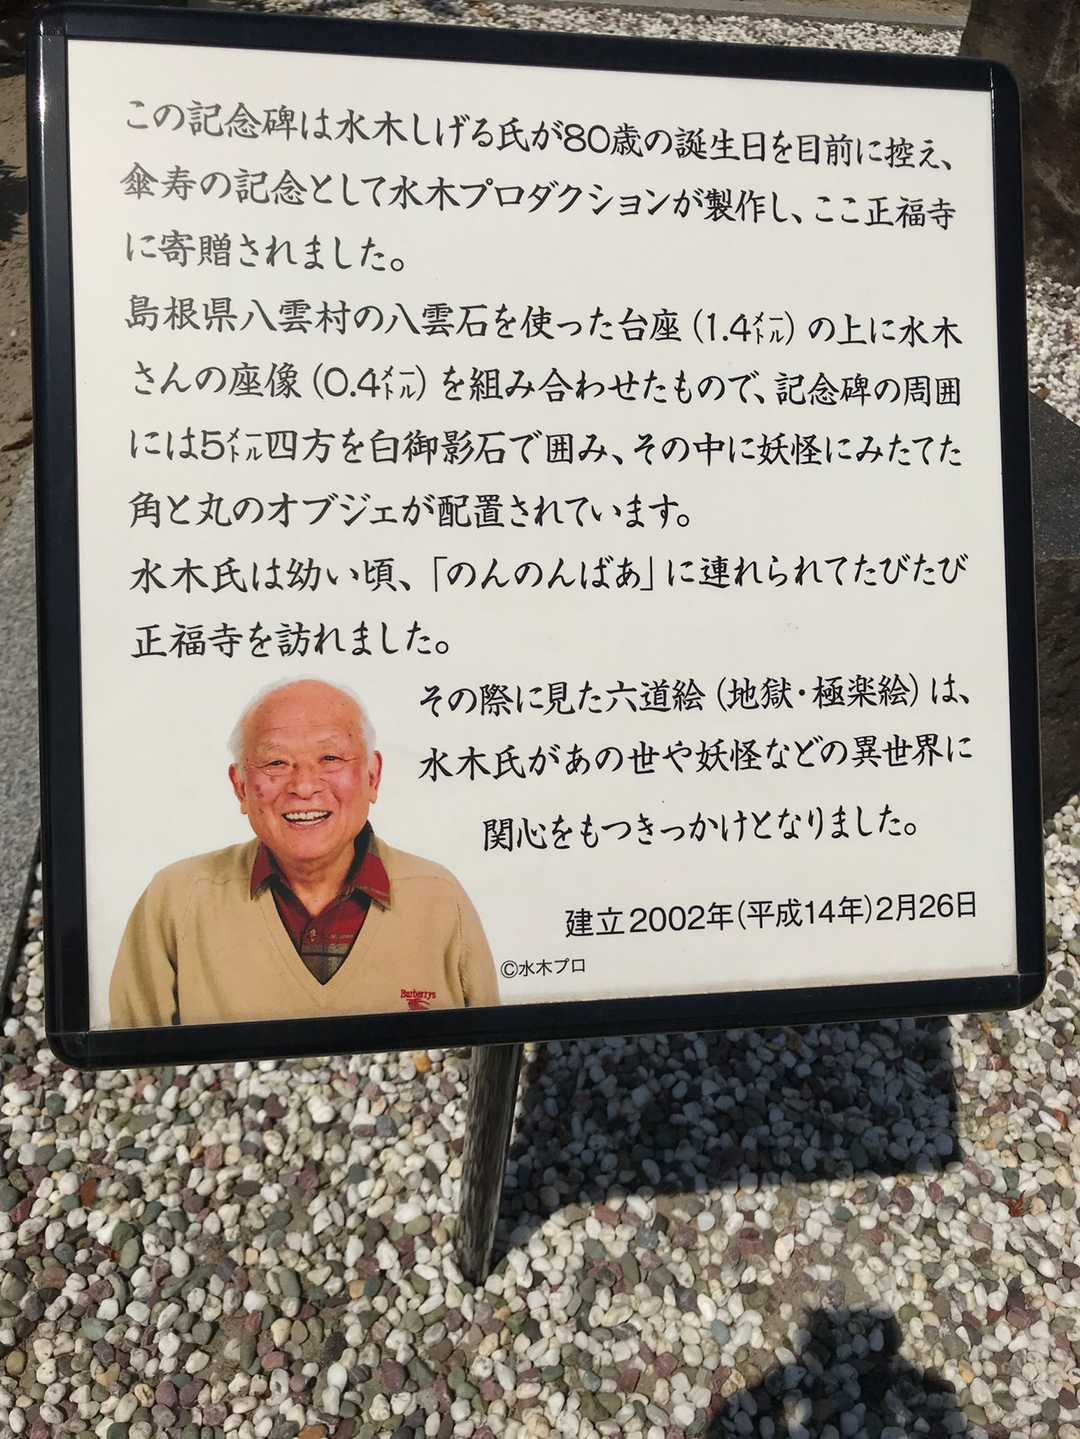 この記念碑は水木しげる氏が80歳の誕生日を目前に控え、
傘寿の記念として水木プロダクションが製作し、ここ正福寺
に寄贈されました。
島根県八雲村の八雲石を使った台座(1.4㍍)の上に水木
さんの座像(0.4㍍)を組み合わせたもので、記念碑の周囲
には5㍍四方を白御影石で囲み、その中に妖怪にみたてた
角と丸のオブジェが配置されています。
水木氏は幼い頃、「のんのんばあ」に連れられてたびたび
正福寺を訪れました。
その際に見た六道絵(地獄・極楽絵)は、
水木氏があの世や妖怪などの異世界に
関心をもつきっかけとなりました。
建立2002年(平成14年)2月26日
©水木プロ
Burberrys